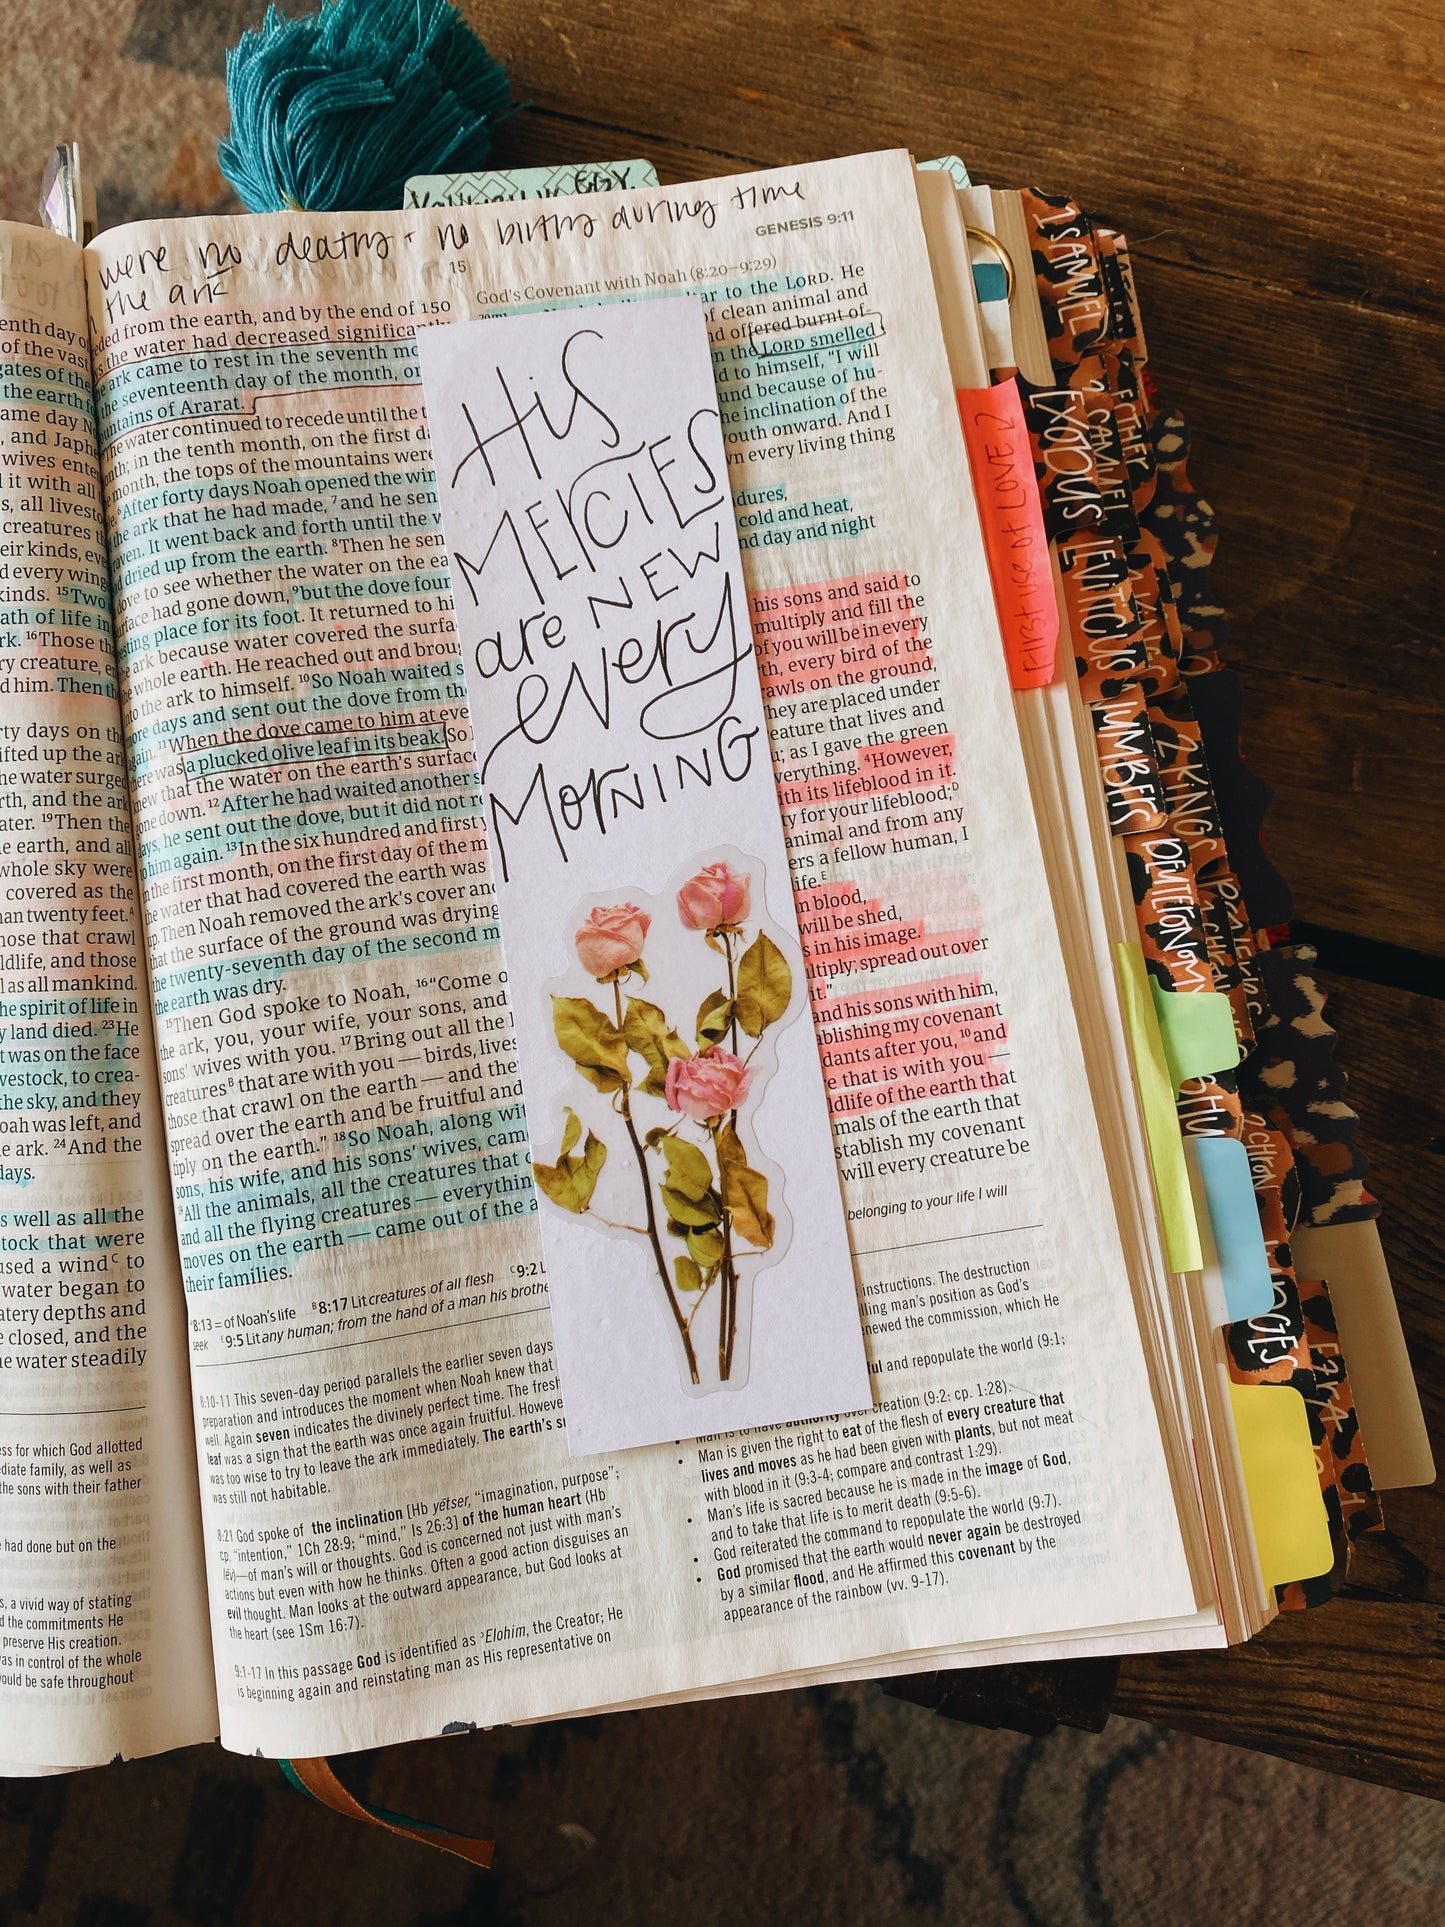 were no deaths + no births during time
the ark
GENESIS 9:11
15
enth day of
of the vast
gates of the
the earth fo
ame day N
, and Japh
wives ente
l it with all
s, all livesto
creatures
eir kinds, eve
d every wing
kinds. 15Two
ath of life in
rk. 16Those th
ry creature, e
d him. Then th
rty days on th
ifted up the ar
he water surged
rth, and the ark
ater. 19Then the
e earth, and all
whole sky were
covered as the
han twenty feet.A
hose that crawl
ldlife, and those
l as all mankind.
he spirit of life in
y land died. 23He
t was on the face
vestock, to crea-
the sky, and they
oah was left, and
e ark. 24And the
days.
s well as all the
tock that were
used a windC to
water began to
atery depths and
e closed, and the
he water steadily
ess for which God allotted
diate family, as well as
the sons with their father
had done but on the
s, a vivid way of stating
d the commitments He
preserve His creation.
as in control of the whole
ould be safe throughout
ded from the earth, and by the end of 150
the water had decreased significantly
ark came to rest in the seventh mo
the seventeenth day of the month, on
untains of Ararat.
The water continued to recede until the t
nth; in the tenth month, on the first d
month, the tops of the mountains were
6After forty days Noah opened the win
the ark that he had made, 7and he sen
raven. It went back and forth until the w
d dried up from the earth. 8Then he sen
dove to see whether the water on the ea
rface had gone down, 9but the dove four
sting place for its foot. It returned to hi
e ark because water covered the surfa
he whole earth. He reached out and broug
nto the ark to himself. 10So Noah waited s
more days and sent out the dove from th
again. 11When the dove came to him at eve
here was a plucked olive leaf in its beak. So
new that the water on the earth's surface
gone down. 12After he had waited another s
days, he sent out the dove, but it did not re
to him again. 13In the six hundred and first y
in the first month, on the first day of the m
the water that had covered the earth was
up. Then Noah removed the ark's cover and
that the surface of the ground was drying
the twenty-seventh day of the second m
the earth was dry.
15Then God spoke to Noah, 16"Come o
the ark, you, your wife, your sons, and
sons' wives with you. 17Bring out all the l
creaturesB that are with you — birds, lives
those that crawl on the earth — and the
spread over the earth and be fruitful and
tiply on the earth." 18So Noah, along wit
sons, his wife, and his sons' wives, cam
19All the animals, all the creatures that c
and all the flying creatures — everythin
moves on the earth — came out of the a
their families.
God's Covenant with Noah (8:20–9:29)
ar to the LORD. He
of clean animal and
nd offered burnt of-
n the LORD smelled
id to himself, "I will
und because of hu-
he inclination of the
youth onward. And I
wn every living thing
dures,
cold and heat,
nd day and night
his sons and said to
multiply and fill the
of you will be in every
rth, every bird of the
rawls on the ground,
hey are placed under
eature that lives and
; as I gave the green
verything. 4However,
ith its lifeblood in it.
ty for your lifeblood;D
animal and from any
ers a fellow human, I
life.E
n blood,
will be shed,
s in his image.
ltiply; spread out over
it."
and his sons with him,
ablishing my covenant
dants after you, 10and
e that is with you —
ldlife of the earth that
mals of the earth that
stablish my covenant
will every creature be
His
MERCIES
are NEW
every
MORNING
A8:13 = of Noah's life B8:17 Lit creatures of all flesh C9:2 L
seek E9:5 Lit any human; from the hand of a man his brothe
belonging to your life I will
8:10-11 This seven-day period parallels the earlier seven days
preparation and introduces the moment when Noah knew that
well. Again seven indicates the divinely perfect time. The fresh
leaf was a sign that the earth was once again fruitful. Howeve
was too wise to try to leave the ark immediately. The earth's su
was still not habitable.
8:21 God spoke of the inclination [Hb yētser, "imagination, purpose";
cp. "intention," 1Ch 28:9; "mind," Is 26:3] of the human heart (Hb
lēv)—of man's will or thoughts. God is concerned not just with man's
actions but even with how he thinks. Often a good action disguises an
evil thought. Man looks at the outward appearance, but God looks at
the heart (see 1Sm 16:7).
9:1-17 In this passage God is identified as ʾElohim, the Creator; He
is beginning again and reinstating man as His representative on
instructions. The destruction
lling man's position as God's
enewed the commission, which He
ful and repopulate the world (9:1;
Man is to have authority over creation (9:2: cp. 1:28).
• Man is given the right to eat of the flesh of every creature that
lives and moves as he had been given with plants, but not meat
with blood in it (9:3-4; compare and contrast 1:29).
• Man's life is sacred because he is made in the image of God,
and to take that life is to merit death (9:5-6).
• God reiterated the command to repopulate the world (9:7).
• God promised that the earth would never again be destroyed
by a similar flood, and He affirmed this covenant by the
appearance of the rainbow (vv. 9-17).
First use of LOVE 2
EXODUS
LEVITICUS
NUMBERS
DEUTERONOMY
SHU
JUDGES
1 SAMUEL
2 SAMUEL
2 KINGS
2 CHRON
EZRA